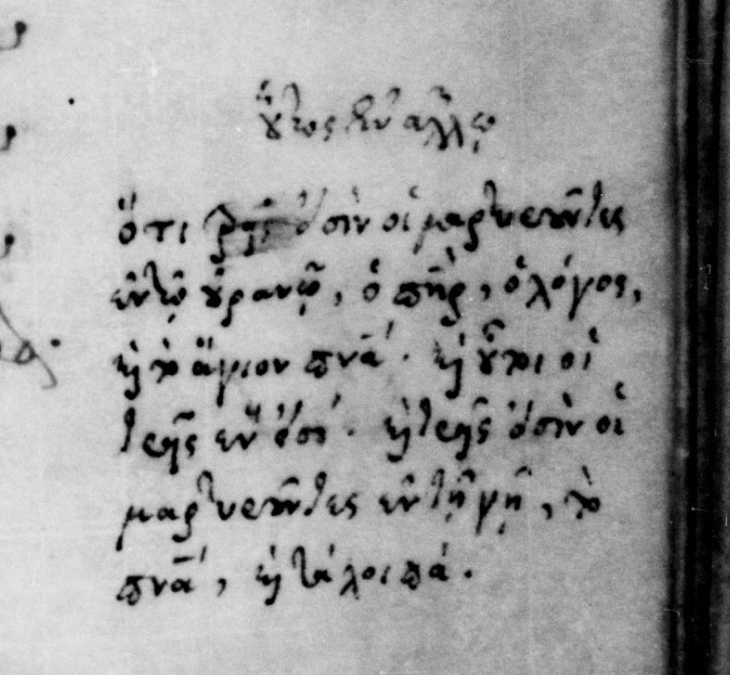 οὕτως ἐν ἄλλῳ
ὅτι τρεῖς εἰσὶν οἱ μαρτυροῦντες
ἐν τῷ οὐρανῷ, ὁ πηρ, ὁ λόγος,
καὶ τὸ ἅγιον πνα· καὶ οὗτοι οἱ
τρεῖς ἕν εἰσι· καὶ τρεῖς εἰσὶν οἱ
μαρτυροῦντες ἐν τῇ γῇ, τὸ
πνα, καὶ τὰ λοιπά.